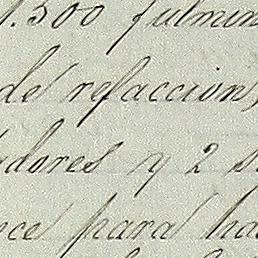 1.300 fulmin
de refaccion,
dores y 2 s
ece para ha